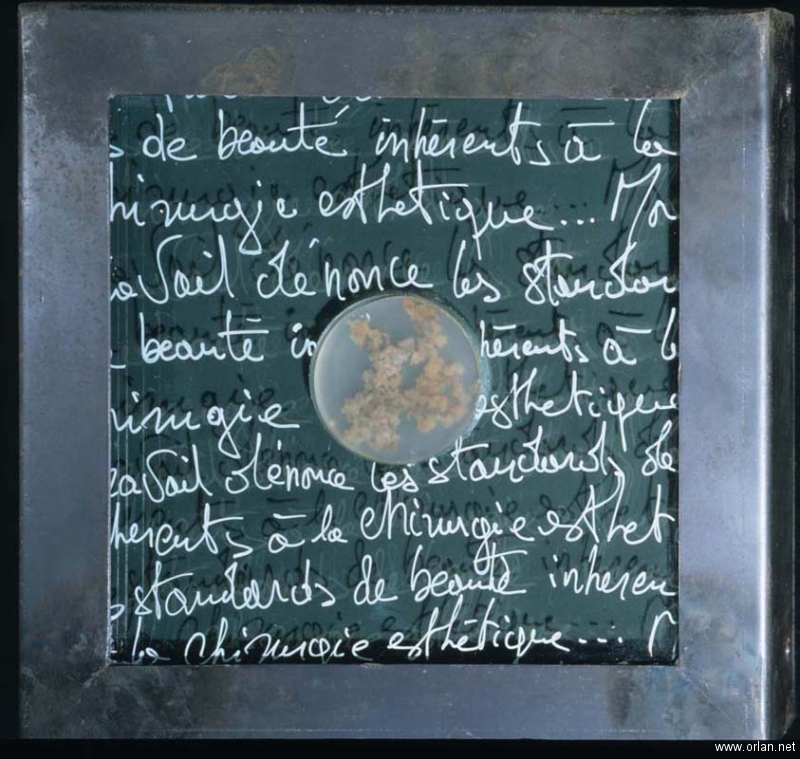 de beauté inhérents à la
hirurgie esthetique... Mon
avail dénonce les standar
beauté in hérents à l
irurgie esthetique
avail dénonce les standards de
hérents à la chirurgie esthet
s standards de beauté inhéren
la chirurgie esthétique... M
www.orlan.net